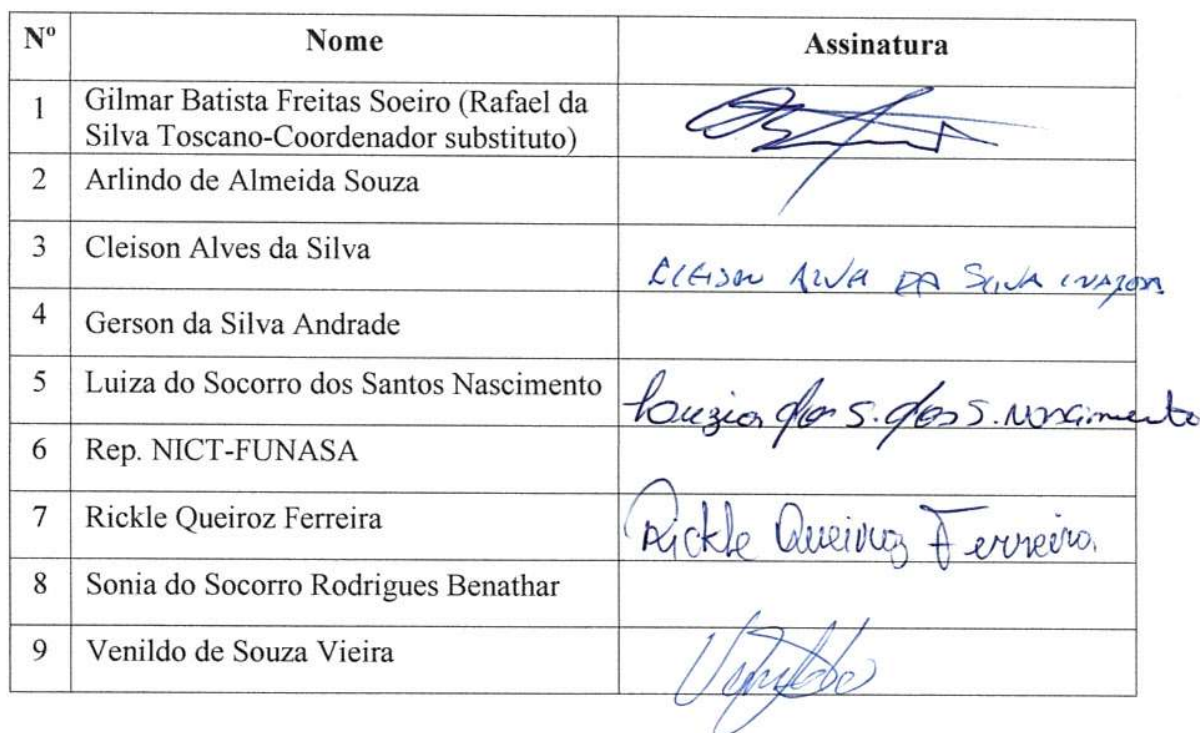 Nº Nome Assinatura
1 Gilmar Batista Freitas Soeiro (Rafael da
Silva Toscano-Coordenador substituto)
2 Arlindo de Almeida Souza
3 Cleison Alves da Silva
DA
4 Gerson da Silva Andrade
5 Luiza do Socorro dos Santos Nascimento
S. dos S. Nascimento
6 Rep. NICT-FUNASA
7 Rickle Queiroz Ferreira
Rickle Queiroz Ferreira
8 Sonia do Socorro Rodrigues Benathar
9 Venildo de Souza Vieira